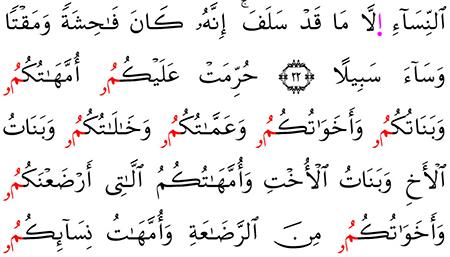 ٱلنِّسَآءِ اِ۬لَّا مَا قَدْ سَلَفَ ۚ إِنَّهُۥ كَانَ فَـٰحِشَةً وَمَقْتًا
وَسَآءَ سَبِيلًا ٢٢ حُرِّمَتْ عَلَيْكُمُۥ أُمَّهَـٰتُكُمُۥ
وَبَنَاتُكُمُۥ وَأَخَوَٰتُكُمُۥ وَعَمَّـٰتُكُمُۥ وَخَـٰلَـٰتُكُمُۥ وَبَنَاتُ
ٱلْأَخِ وَبَنَاتُ ٱلْأُخْتِ وَأُمَّهَـٰتُكُمُ ٱلَّـٰتِى أَرْضَعْنَكُمُۥ
وَأَخَوَٰتُكُمُۥ مِنَ ٱلرَّضَـٰعَةِ وَأُمَّهَـٰتُ نِسَآئِكُمُۥ